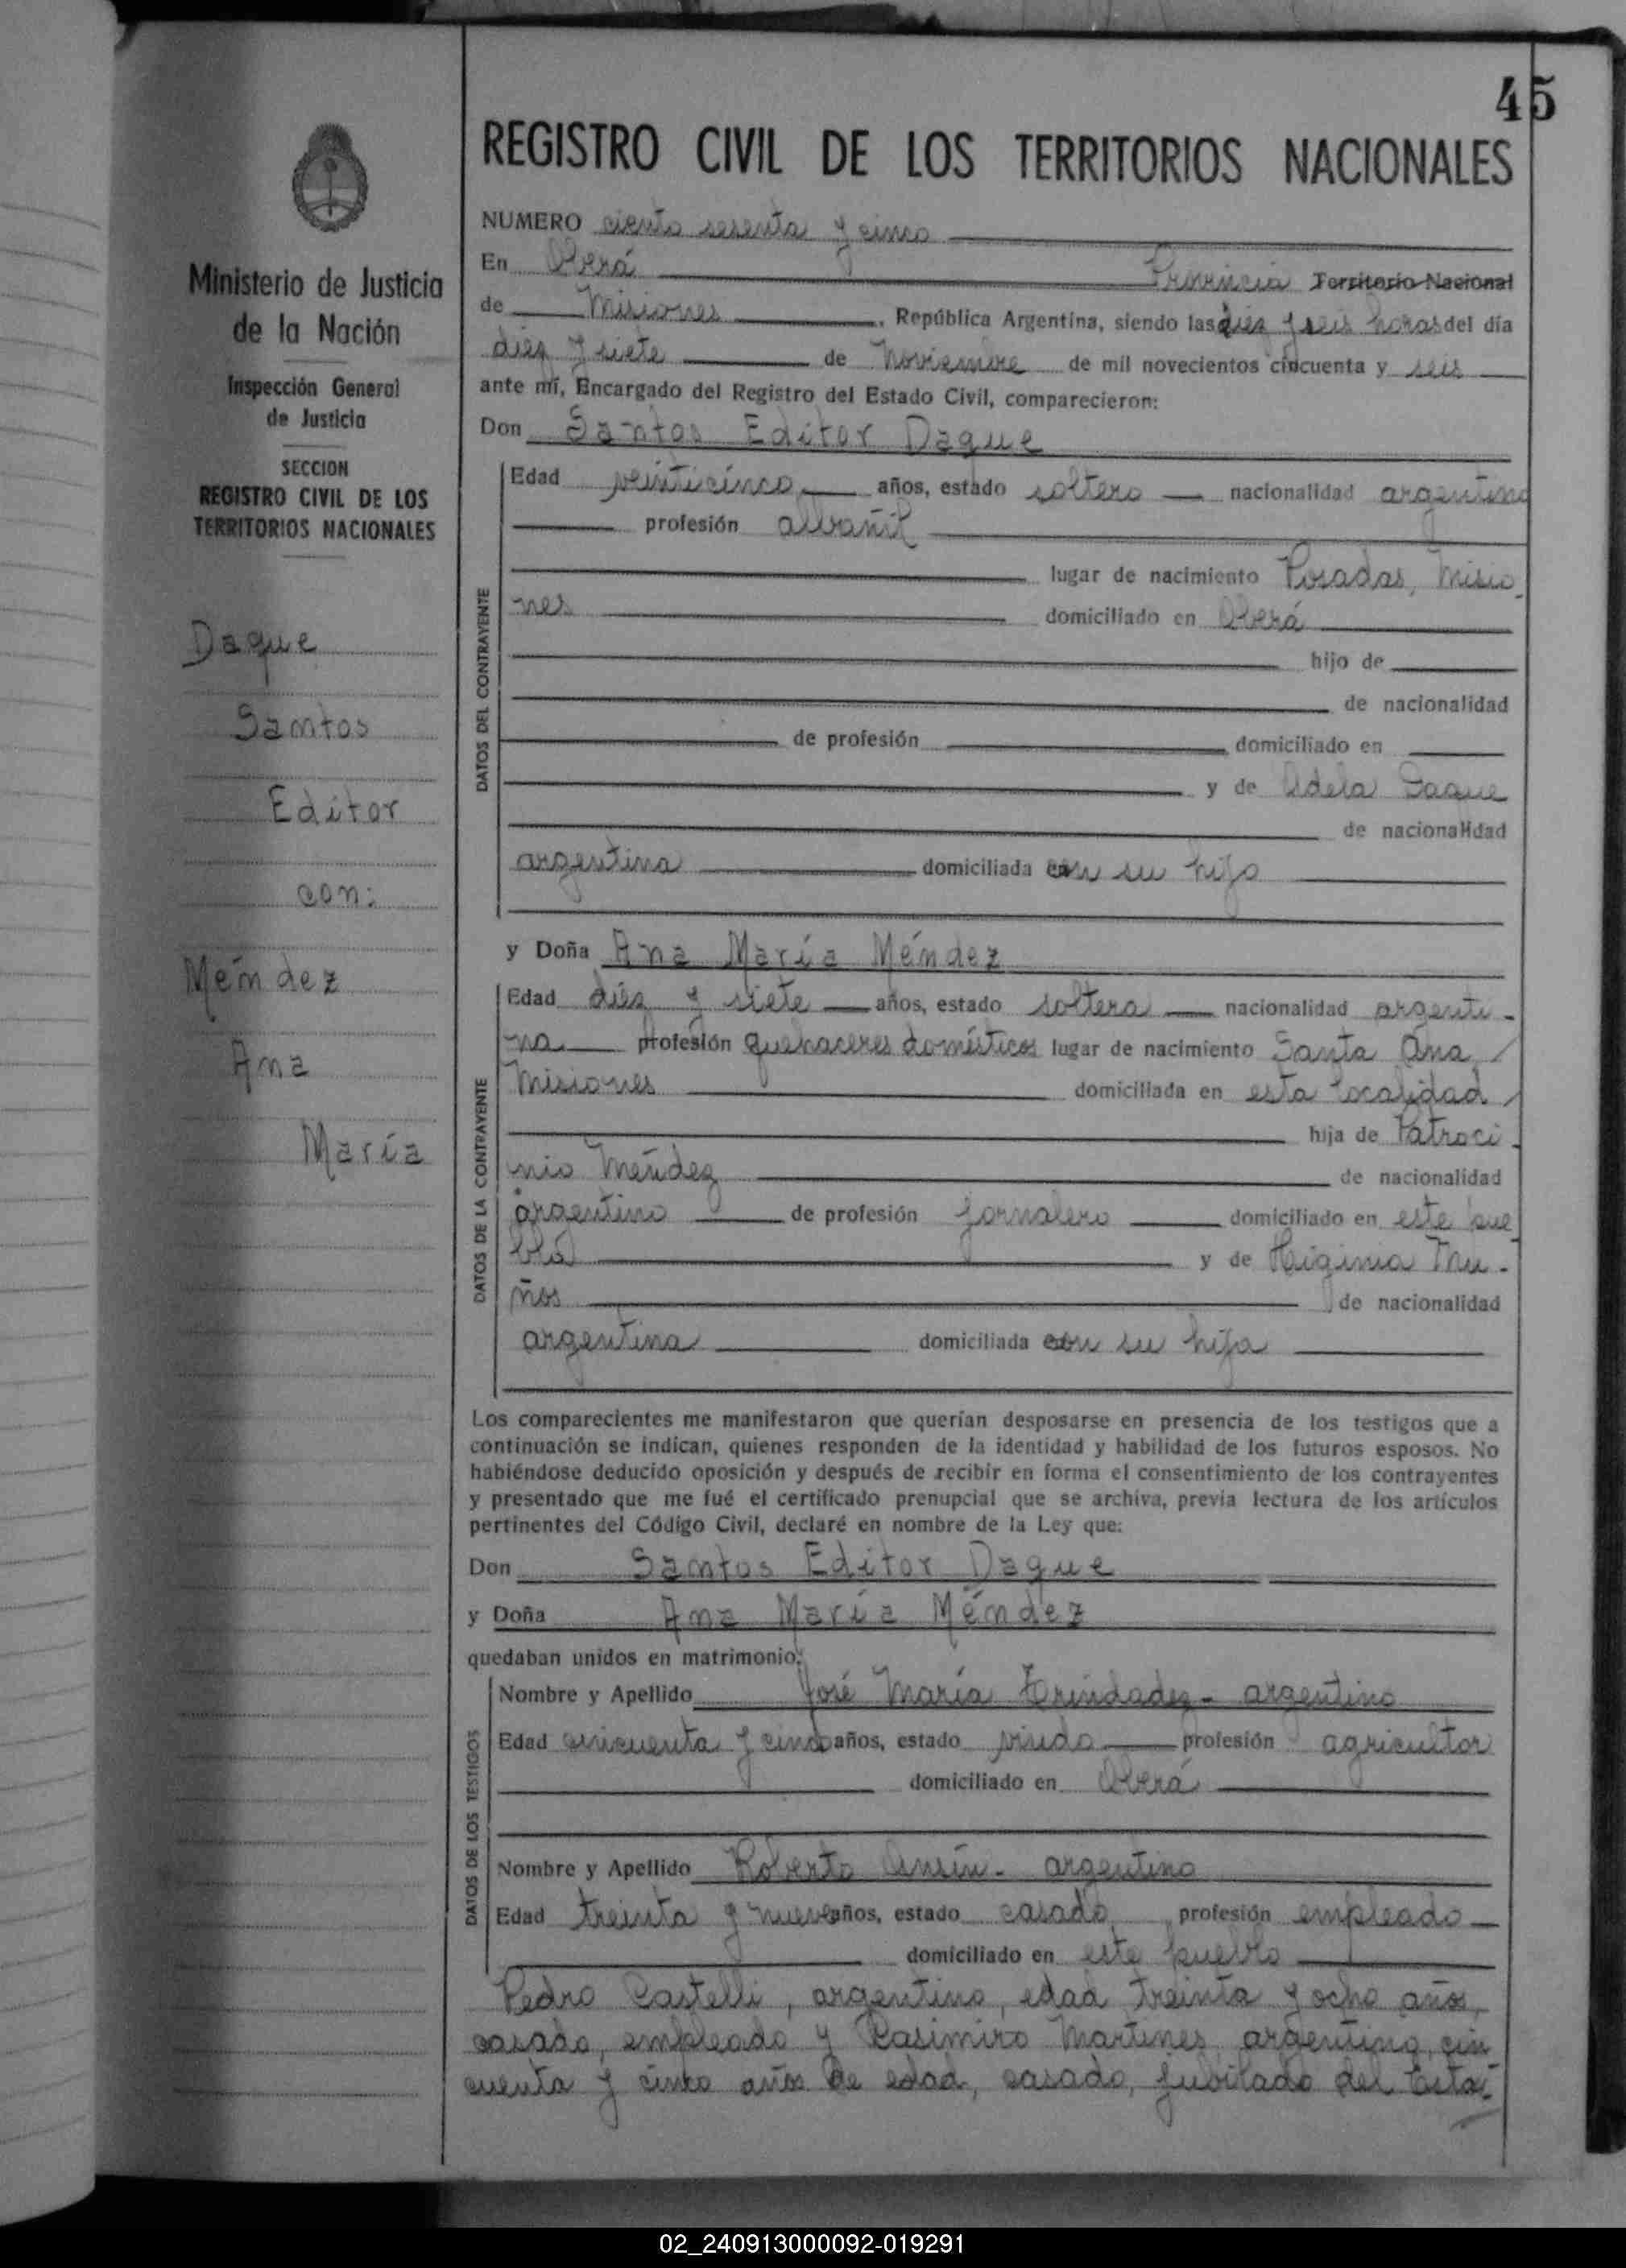 45
REGISTRO CIVIL DE LOS TERRITORIOS NACIONALES
Ministerio de Justicia
de la Nación
Inspección General
de Justicia
SECCION
REGISTRO CIVIL DE LOS
TERRITORIOS NACIONALES
Daque
Santos
Editor
con:
Méndez
Ana
María
NUMERO ciento sesenta y cinco
En Oberá Provincia Territorio Nacional
de Misiones, República Argentina, siendo las diez y seis horas del día
diez y siete de Noviembre de mil novecientos cincuenta y seis
ante mí, Encargado del Registro del Estado Civil, comparecieron:
Don Santos Editor Daque
DATOS DEL CONTRAYENTE
Edad veinticinco años, estado soltero nacionalidad argentino
profesión albañil
lugar de nacimiento Posadas, Misio
nes domiciliado en Oberá
hijo de
de nacionalidad
de profesión domiciliado en
y de Adela Daque
de nacionalidad
argentina domiciliada con su hijo
y Doña Ana María Méndez
DATOS DE LA CONTRAYENTE
Edad diez y siete años, estado soltera nacionalidad argenti-
na profesión quehaceres domésticos lugar de nacimiento Santa Ana,
Misiones domiciliada en esta localidad
hija de Patroci-
nio Méndez de nacionalidad
argentino de profesión jornalero domiciliado en este pue
blo y de Higinia Mu-
ños de nacionalidad
argentina domiciliada con su hija
Los comparecientes me manifestaron que querían desposarse en presencia de los testigos que a
continuación se indican, quienes responden de la identidad y habilidad de los futuros esposos. No
habiéndose deducido oposición y después de recibir en forma el consentimiento de los contrayentes
y presentado que me fué el certificado prenupcial que se archiva, previa lectura de los artículos
pertinentes del Código Civil, declaré en nombre de la Ley que:
Don Santos Editor Daque
y Doña Ana María Méndez
quedaban unidos en matrimonio.
DATOS DE LOS TESTIGOS
Nombre y Apellido José María Trindadez - argentino
Edad cincuenta y cinco años, estado viudo profesión agricultor
domiciliado en Oberá
Nombre y Apellido Roberto Ansín - argentino
Edad treinta y nueve años, estado casado profesión empleado
domiciliado en este pueblo
Pedro Castelli, argentino, edad treinta y ocho años,
casado, empleado y Casimiro Martines, argentino, cin
cuenta y cinco años de edad, casado, jubilado del Esta-
02_240913000092-019291